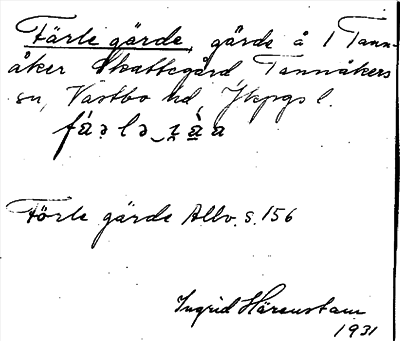 Färle gärde, gärde å 1 Tann-
åker Skattegård, Tannåkers
sn, Västbo hd, Jkpgs l.
Förle gärde Allv. s. 156
Ingrid Härenstam
1931